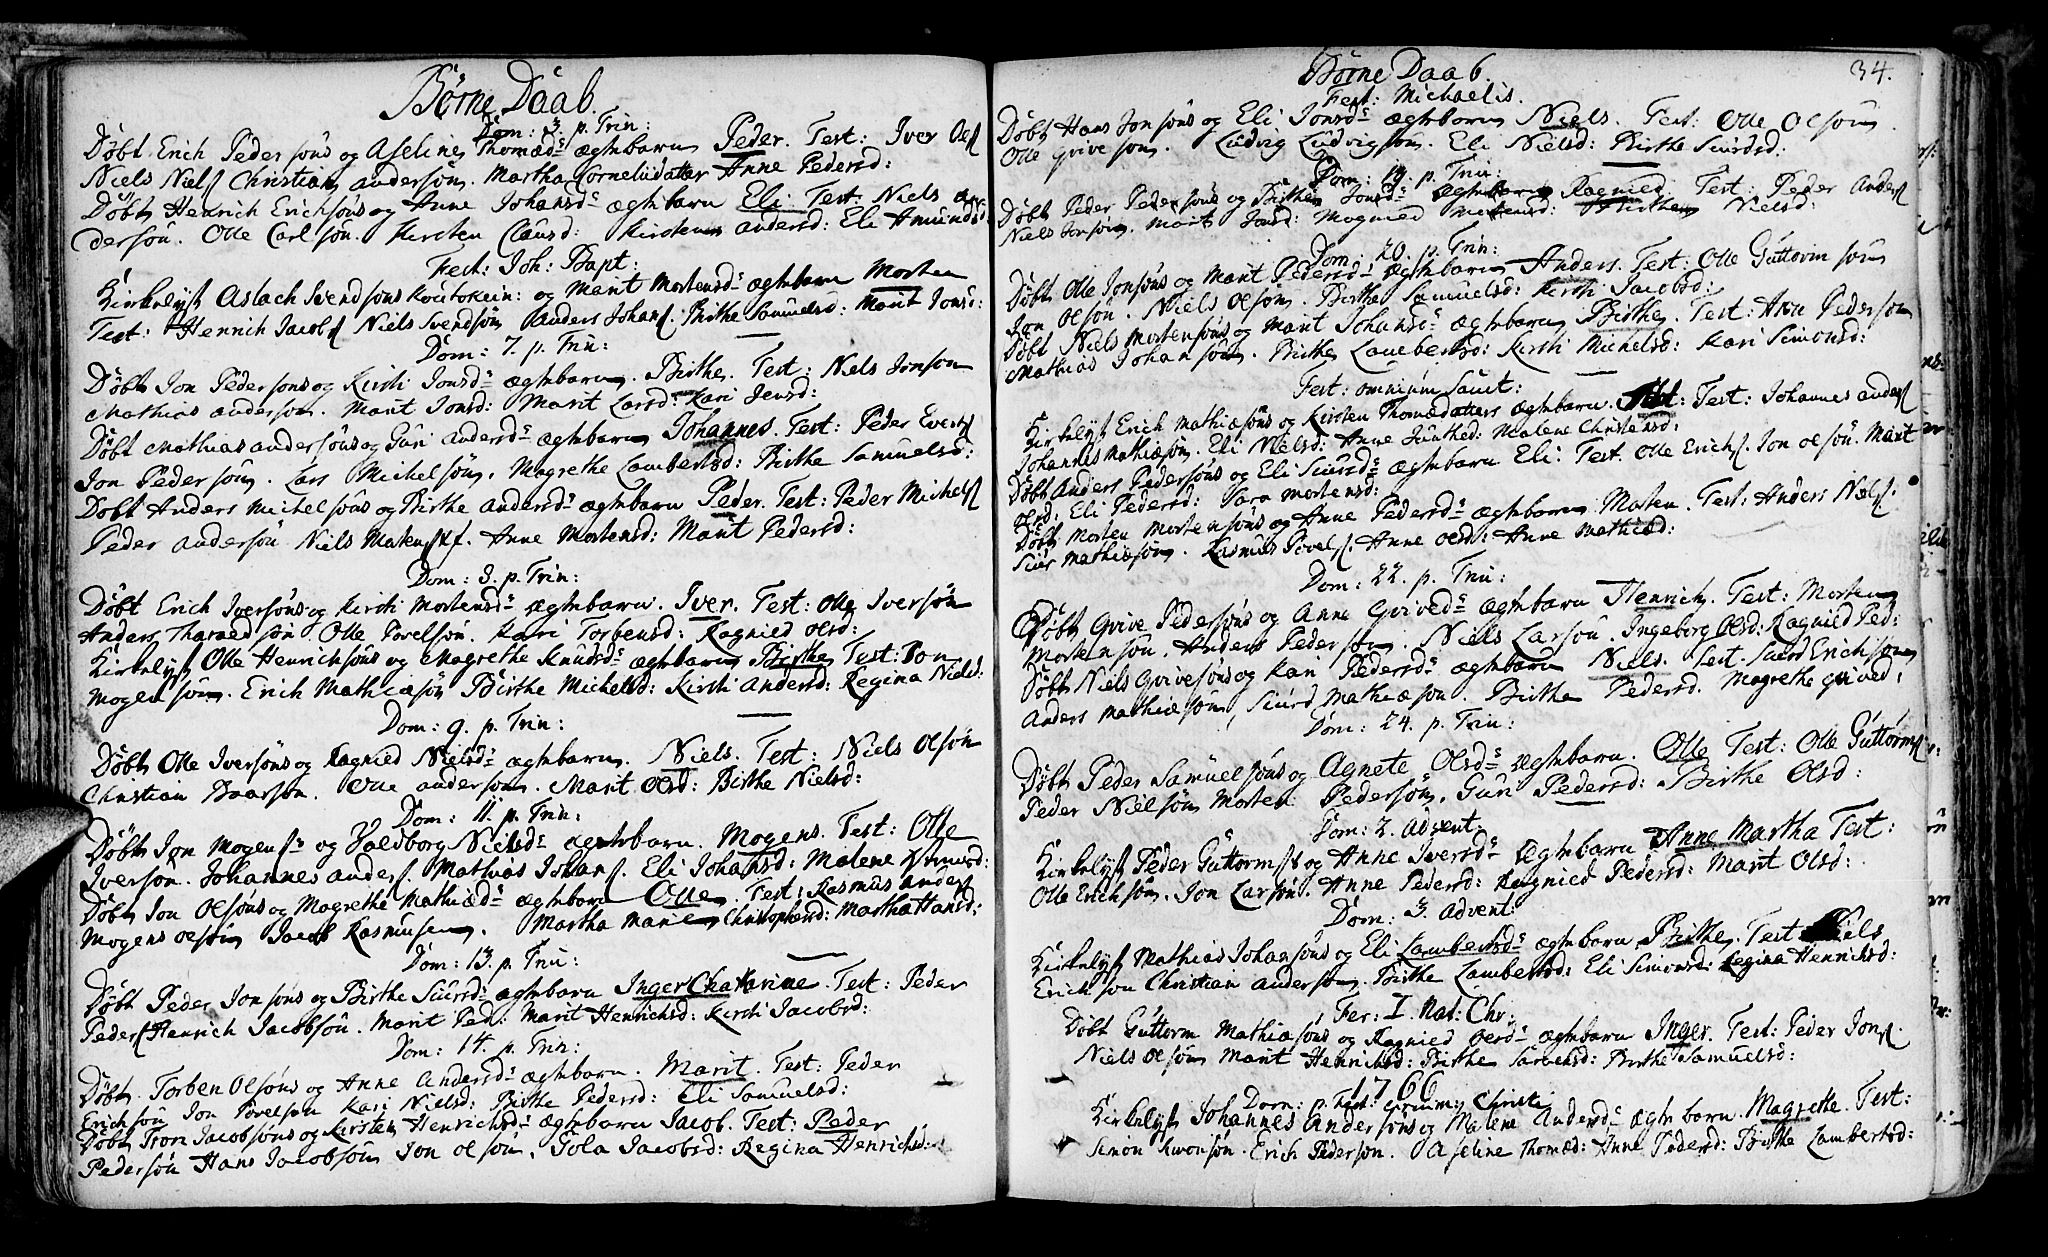 Børne Daab.
Dom: 3. p. Trin:
Døbt Erich Pedersøns og Aseline Thomæd:s ægtebarn Peder. Test: Iver Ols
Niels Niels Christian andersøn. Martha Corneliidatter Anne Pedersd:
Døbt Henrich Erichsøns og Anne Johansd:s ægtebarn Eli. Test: Niels An-
dersøn. Olle Carlsøn. Kirsten Clausd: Kirsten andersd: Eli Amundsd:
Fest: Joh: Bapt:
Kirkelyst Aslach Svendsøns Koutokein: og Marit Mortensd:s ægtebarn Morten
Test: Henrich Jacobs Niels Svendsøn Anders Johans. Birthe Samuelsd: Marit Jonsd:
Dom: 7. p. Trin:
Døbt Jon Pedersøns og Kirsti Jonsd:s ægtebarn. Birthe. Test: Niels Jonsøn
Mathias andersøn. Marit Jonsd: Marit Larsd: Kari Jensd:
Døbt Mathias andersøns og Guri andersd:s ægtebarn Johannes. Test: Peder Everts
Jon Pedersøn. Lars Michelsøn. Magrethe Lambertsd: Birthe Samuelsd:
Døbt Anders Michelsøns og Birthe andersd:s ægtebarn Peder. Test: Peder Michels
Peder andersøn Niels Anne Mortensd: Marit Pedersd:
Dom: 8. p. Trin:
Døbt Erich Iversøns og Kirsti Mortensd:s ægtebarn. Iver. Test: Olle Iversøn
Anders Olle Povelsøn. Kari Torbensd: Ragnied Olsd:
Kirkelyst Olle Henrichsøns og Magrethe Knudsd:s ægtebarn Birthe Test: Jon
Mogensøn. Erich Mathiæsøn Birthe Michelsd: Kirsti Andersd: Regina Nielsd:
Dom: 9. p. Trin:
Døbt Olle Iversøns og Ragnied Nielsd:s ægtebarn. Niels. Test: Niels Olsøn
Christian Baarsøn. Olle andersøn. Marit Olsd: Birthe Nielsd:
Dom: 11. p. Trin:
Døbt Jon Mogens:s og Valdborg Nielsd:s ægtebarn. Mogens. Test: Olle
Iversøn. Johannes anders. Mathias Johans. Eli Johansd: Malene
Døbt Jon Olsøns og Magrethe Mathiæd:s ægtebarn Olle. Test: Rasmus anders
Mogens olsøn Jacob Rasmusen. Martha Marie Christophersd: Martha Hansd:
Dom: 13. p. Trin:
Døbt Peder Jonsøns og Birthe Siursd:s ægtebarn Inger Chatarine. Test: Peder
Peders Henrich Jacobsøn. Marit Ped: Marit Henrichsd: Kirsti Jacobsd:
Dom: 14. p. Trin:
Døbt Torben Olsøns og Anne Andersd:s ægtebarn. Marit. Test: Peder
Erichsøn Jon Povelsøn Kari Nielsd: Birthe Pedersd: Eli Samuelsd:
Døbt Tron Jacobsøns og Kirsten Henrichsd:s ægtebarn Jacob. Test: Peder
Pedersøn Hans Jacobsøn Jon olsøn. Gola Jacobsd: Regina Henrichsd:
34.
Børne Daab.
Fest: Michaelis.
Døbt Hans Jonsøns og Eli Jonsd:s ægtebarn Niels. Test: Olle Olsøn
Olle Grivesøn. Ludvig Ludvigsøn. Eli Nielsd: Birthe Siursd:
Dom: 19. p. Trin:
Døbt Peder Pedersøns og Birthe Jonsd:s ægtebarn Ragnied. Test: Peder Anders
Niels Jonsøn. Marit Jonsd: Magnied Birthe Nielsd:
Dom: 20. p. Trin:
Døbt Olle Jonsøns og Marit Pedersd:s ægtebarn Anders. Test: Olle Guttormsøn
Jon Olsøn. Niels Olsøn. Birthe Samuelsd: Kirsti Jacobsd:
Døbt Niels Mortensøns og Marit Johansd:s ægtebarn Birthe. Test: Pedersøn
Mathias Johansøn. Birthe Lambertsd: Kirsti Michelsd: Kari Simonsd:
Fest: omnium Sanct:
Kirkelyst Erich Mathiæsøns og Kirsten Thomædatters ægtebarn. Test: Johannes anders
Johannes Mathiæsøn. Eli Nielsd: Anne Malene Christensd:
Døbt Anders Pedersøns og Eli Siursd:s ægtebarn Eli. Test. Olle Erichs. Jon olsøn. Marit
olsd: Eli Pedersd: Sara Mortensd:
Døbt Morten Mortensøns og Anne Pedersd:s ægtebarn Morten. Test: Anders Niels.
Siur Mathiæsøn. Rasmus Povels. Anne olsd: Anne Mathiæd:
Dom: 22. p. Trin:
Døbt Grive Pedersøns og Anne Grived:s ægtebarn Henrich. Test: Morten
Mortensøn. Anders Pedersøn. Niels Larsøn. Ingeborg Olsd: Ragnied Ped:
Døbt Niels Grivesøns og Kari Pedersd:s ægtebarn Niels. Test. Siurd Erichsøn
Anders Mathiæsøn, Siurd Mathiæsøn. Birthe Pedersd. Magrethe Grived:
Dom: 24. p. Trin:
Døbt Peder Samuelsøns og Agnete Olsd:s ægtebarn. Olle Test: Olle Guttorms
Peder Nielsøn Morten Pedersøn. Guri Pedersd: Birthe Olsd:
Dom: 2. Advent.
Kirkelyst Peder Guttorms:s og Anne Iversd:s ægtebarn Anne Martha Test:
Olle Erichsøn. Jon Larsøn. Anne Pedersd: Ragnied Pedersd: Marit Olsd:
Dom: 3. Advent
Kirkelyst Mathias Johansøns og Eli Lambertsd:s ægtebarn Birthe. Test Niels
Erichsøn Christian andersøn. Birthe Lambertsd: Eli Simonsd: Regina Henrichsd:
Fer: I. Nat: Chr:
Døbt Guttorm Mathiæsøns og Ragnied Olsd:s ægtebarn Inger. Test: Peder Jons.
Niels Olsøn Marit Henrichsd: Birthe Samuelsd: Birthe Samuelsd:
1766
Dom: p. Fest: Circumc: Christi
Kirkelyst Johannes Andersøns og Malene Andersd:s ægtebarn. Magrethe. Test:
Simon Erich Pedersøn. Aseline Thomæd: Anne Pedersd: Birthe Lambertsd: